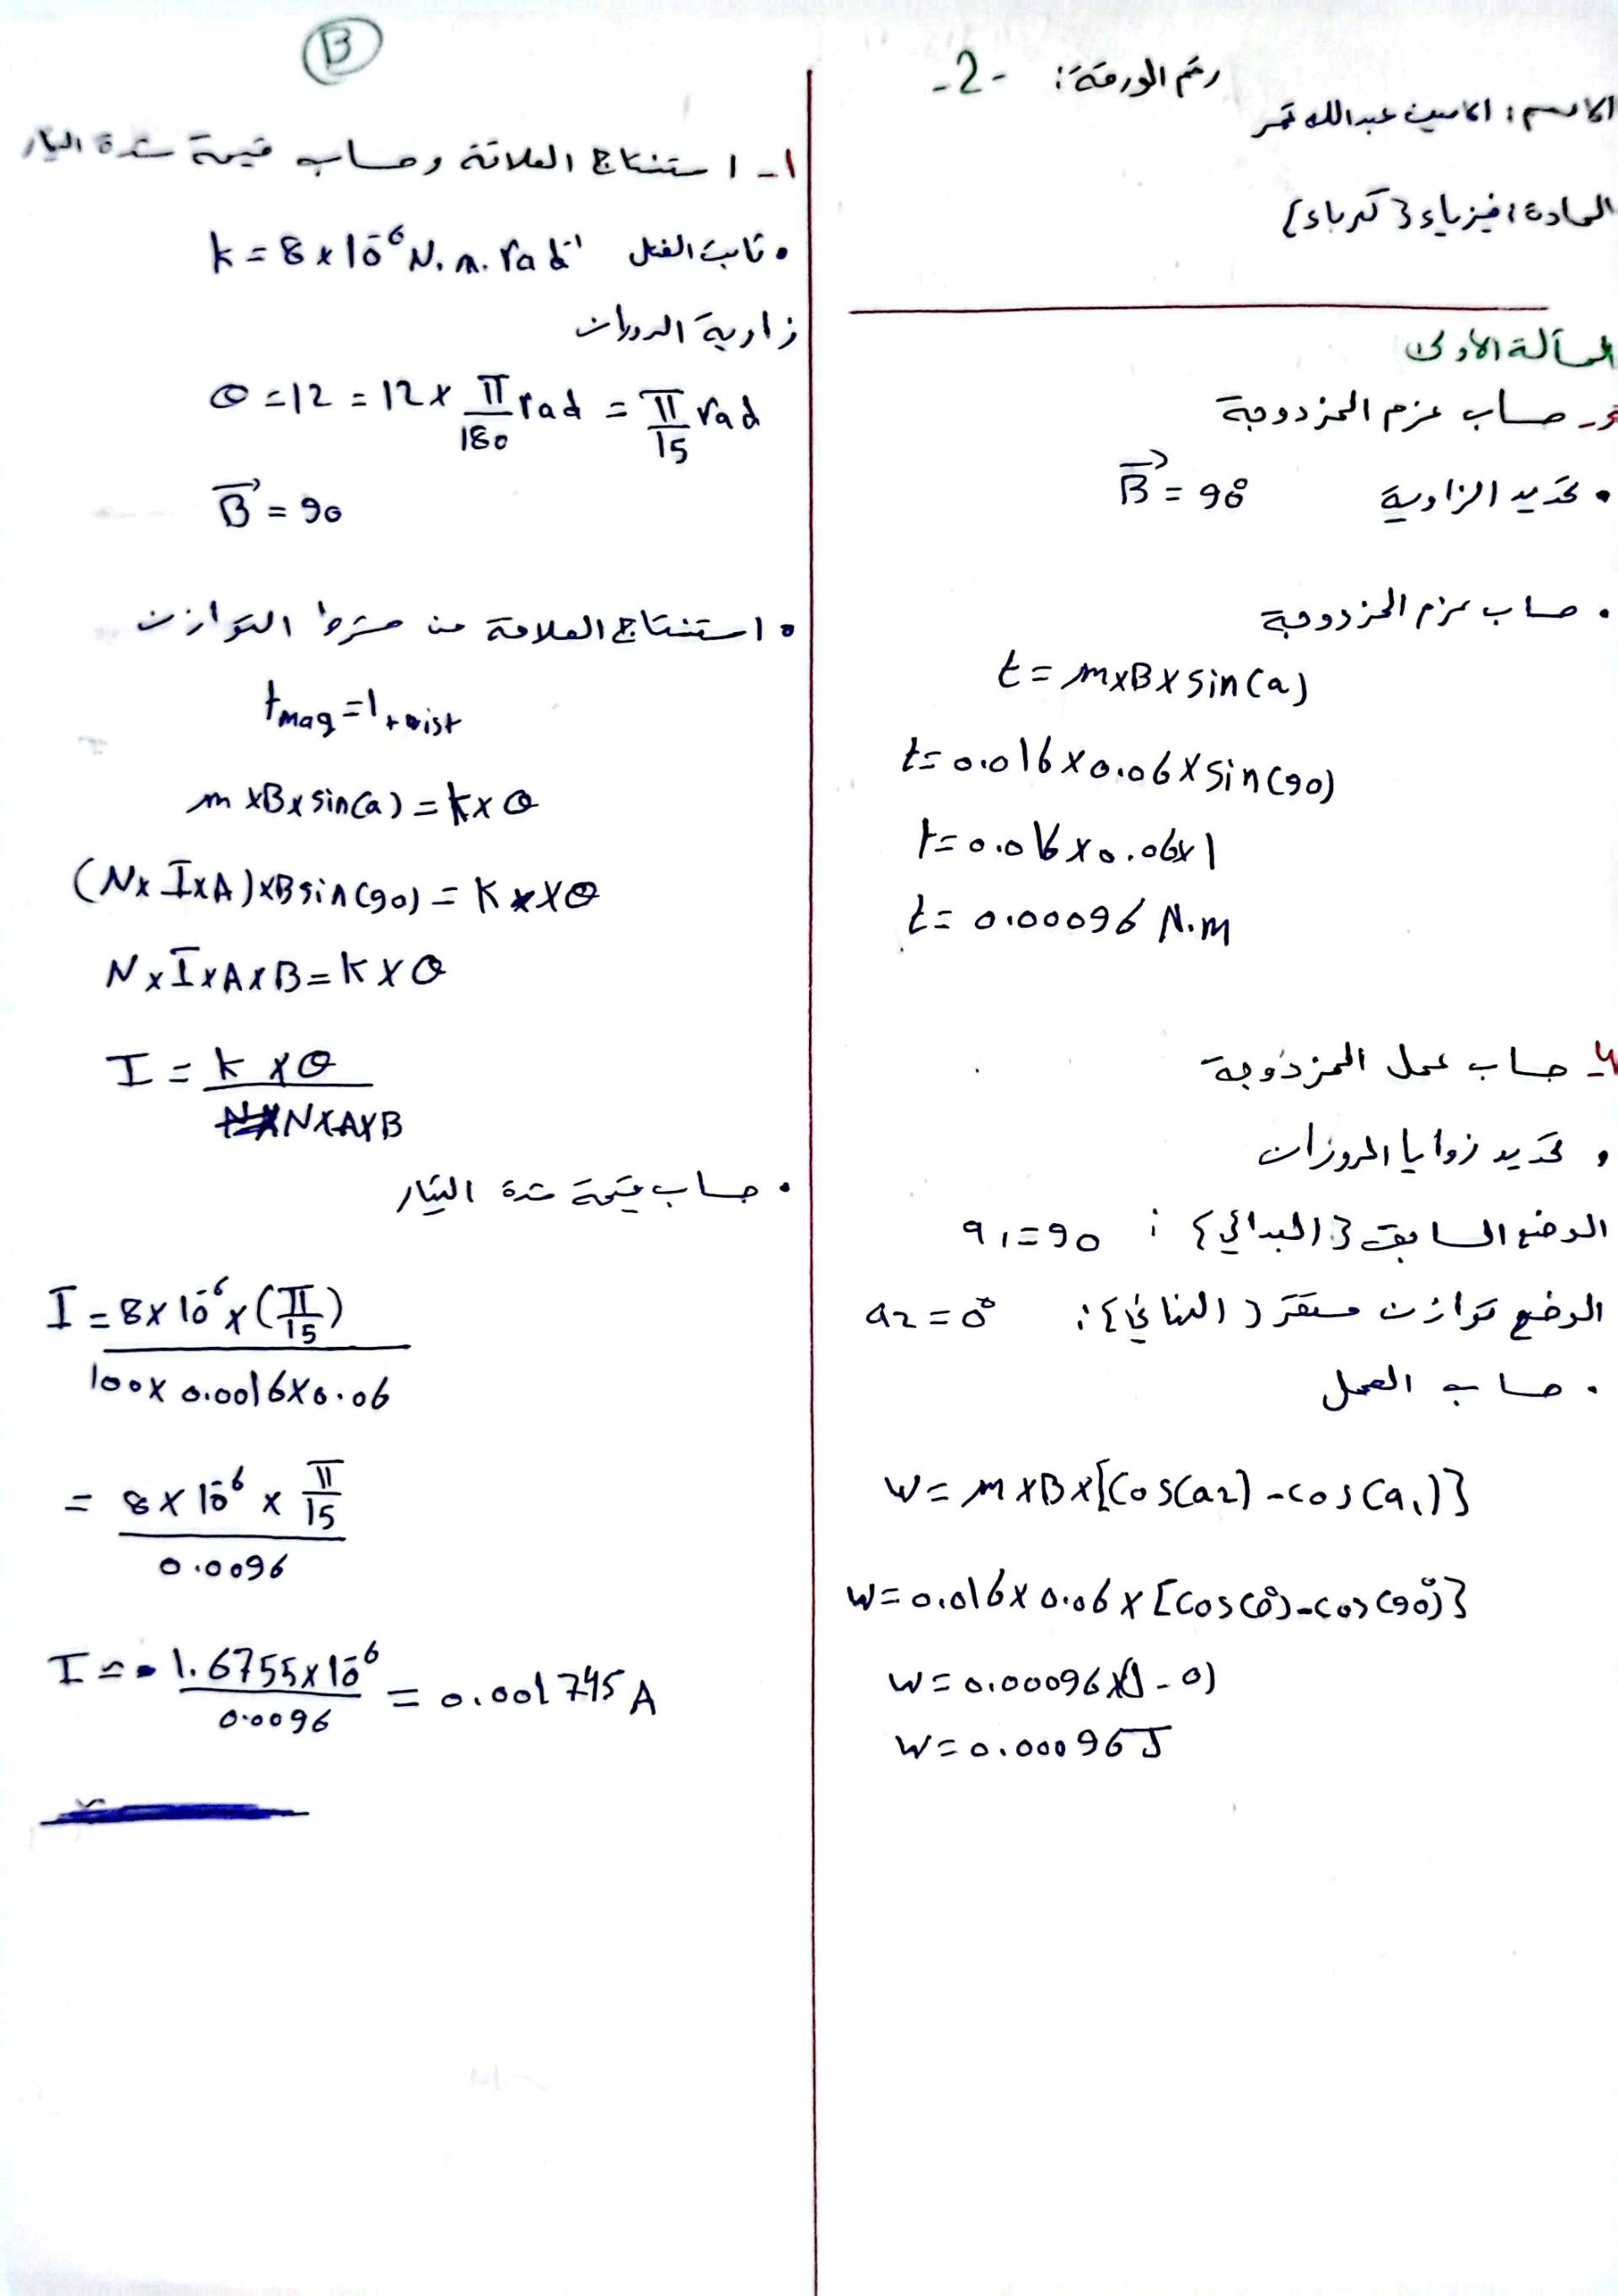 رقم الورقة: -2-
الاسم: الامين عبدالله قمر
المادة: فيزياء {كهرباء}
المسألة الأولى
حساب عزم المزدوجة
• تحديد الزاوية B = 90°
• حساب عزم المزدوجة
t = m×B×sin(a)
t = 0.016×0.06×sin(90)
t = 0.016×0.06×1
t = 0.00096 N.m
4- حساب عمل المزدوجة
• تحديد زوايا الدوران
الوضع السابق {البدائي} : a1 = 90
الوضع توازن مستقر {النهائي}: a2 = 0°
• حساب العمل
W = m×B×[cos(a2) - cos(a1)}
W = 0.016×0.06×[cos(0°) - cos(90°)}
W = 0.00096×(1 - 0)
W = 0.00096 J
B
1- استنتاج العلاقة وحساب قيمة شدة التيار
• ثابت الفتل k = 8×10⁻⁶ N.m.rad⁻¹
زاوية الدوران
θ = 12 = 12× π/180 rad = π/15 rad
B = 90
• استنتاج العلاقة من شرط التوازن
tmag = ttwist
m×B×sin(a) = k×θ
(N×I×A)×B sin(90) = K××θ
N×I×A×B = k×θ
I = k×θ / N×A×B
• حساب قيمة شدة التيار
I = 8×10⁻⁶×(π/15) / 100×0.0016×0.06
= 8×10⁻⁶ × π/15 / 0.0096
I = 1.6755×10⁻⁶ / 0.0096 = 0.001745 A